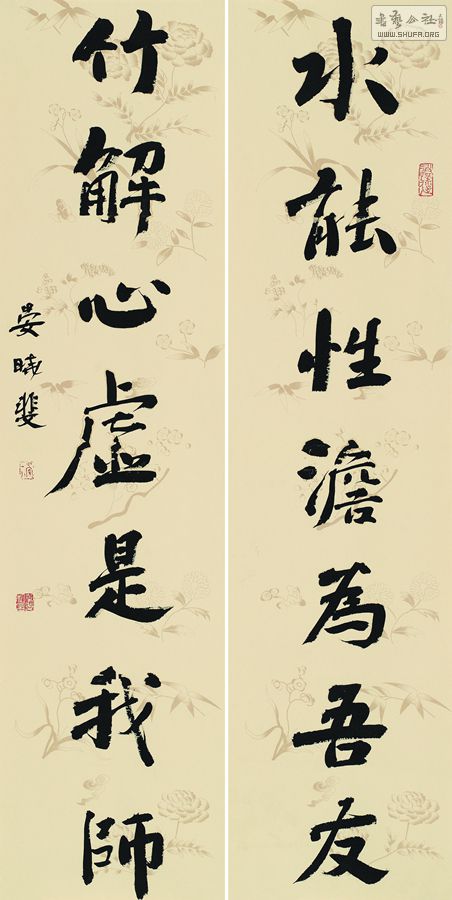 水能性澹為吾友
竹解心虛是我師
晏晓斐
書藝公社
WWW.SHUFA.ORG